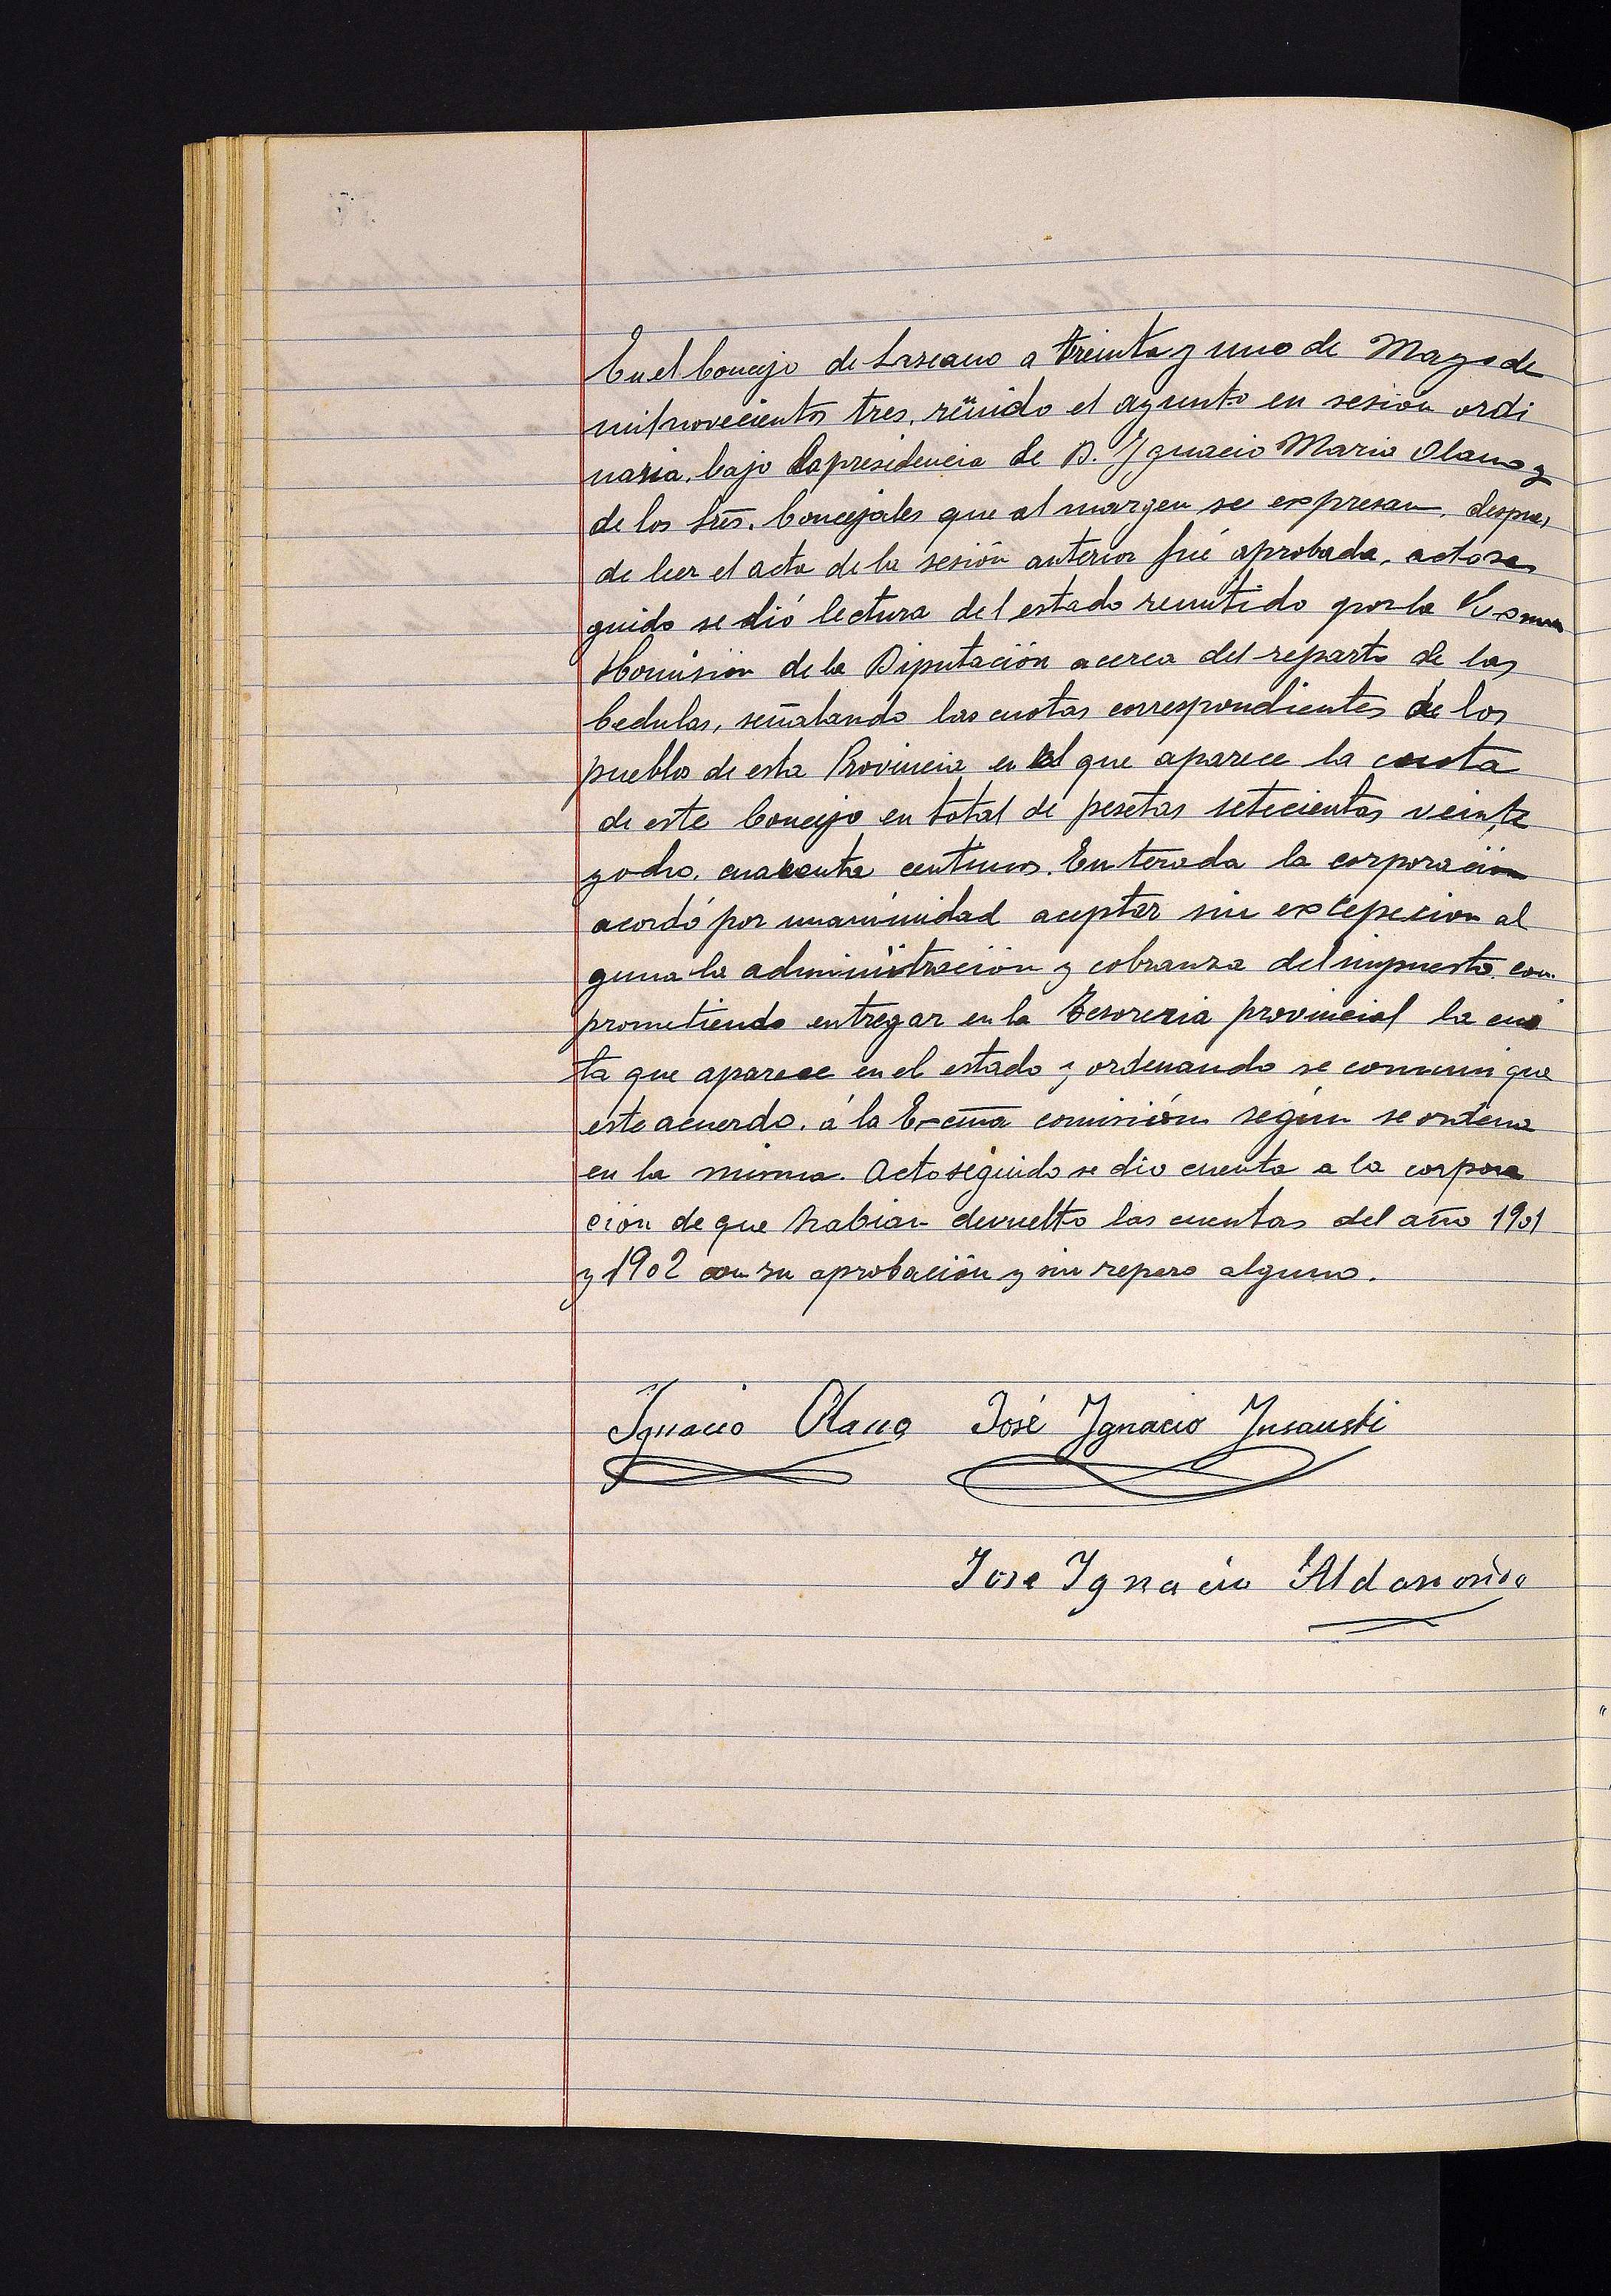 En el Concejo de Lazcano a treinta y uno de Mayo de
mil novecientos tres, reünido el ayunto en sesión ordi
naria, bajo la presidencia de D. Ygnacio Maria Olano y
de los Sres. Concejales que al margen se expresan, despues
de leer el acta de la sesión anterior fué aprobada, acto se
guido se dió lectura del estado remitido por la Excma
Comisión de la Diputación acerca del reparto de las
Cedulas, señalando las cuotas correspondientes de los
pueblos de esta Provincia en el que aparece la cuota
de este Concejo en total de pesetas setecientas veinte
y ocho, cuarenta centimos. Enterada la corporación
acordó por unanimidad aceptar sin excepecion al
guna la administración y cobranza del impuesto com
prometiendo entregar en la Tesoreria provincial la cuo
ta que aparece en el estado y ordenando se comunique
este acuerdo, á la Excma comisión según se ordena
en la misma. Acto seguido se dio cuenta a la corpora
ción de que habian devuelto las cuentas del año 1901
y 1902 con su aprobación y sin reparo alguno.
Ignacio Olano José Ygnacio Ynsausti
Jose Ignacio Aldasoro